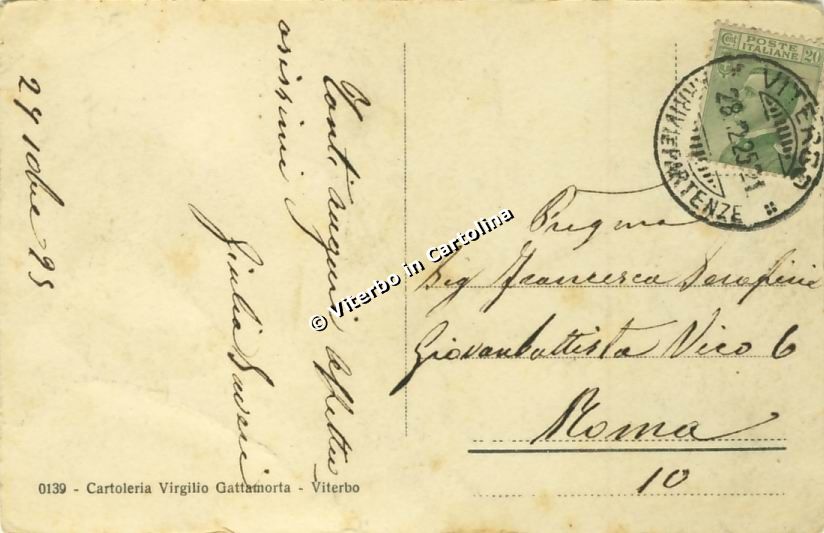 29 10bre 95
Tanti auguri affettu
osissimi
Giulia
Cent POSTE ITALIANE 20
VITERBO
28.12.25 21
ARRIVI E PARTENZE
Pregma
Sig Francesca Serafini
Giovanbattista Vico 6
Roma
10
0139 - Cartoleria Virgilio Gattamorta - Viterbo
© Viterbo in Cartolina